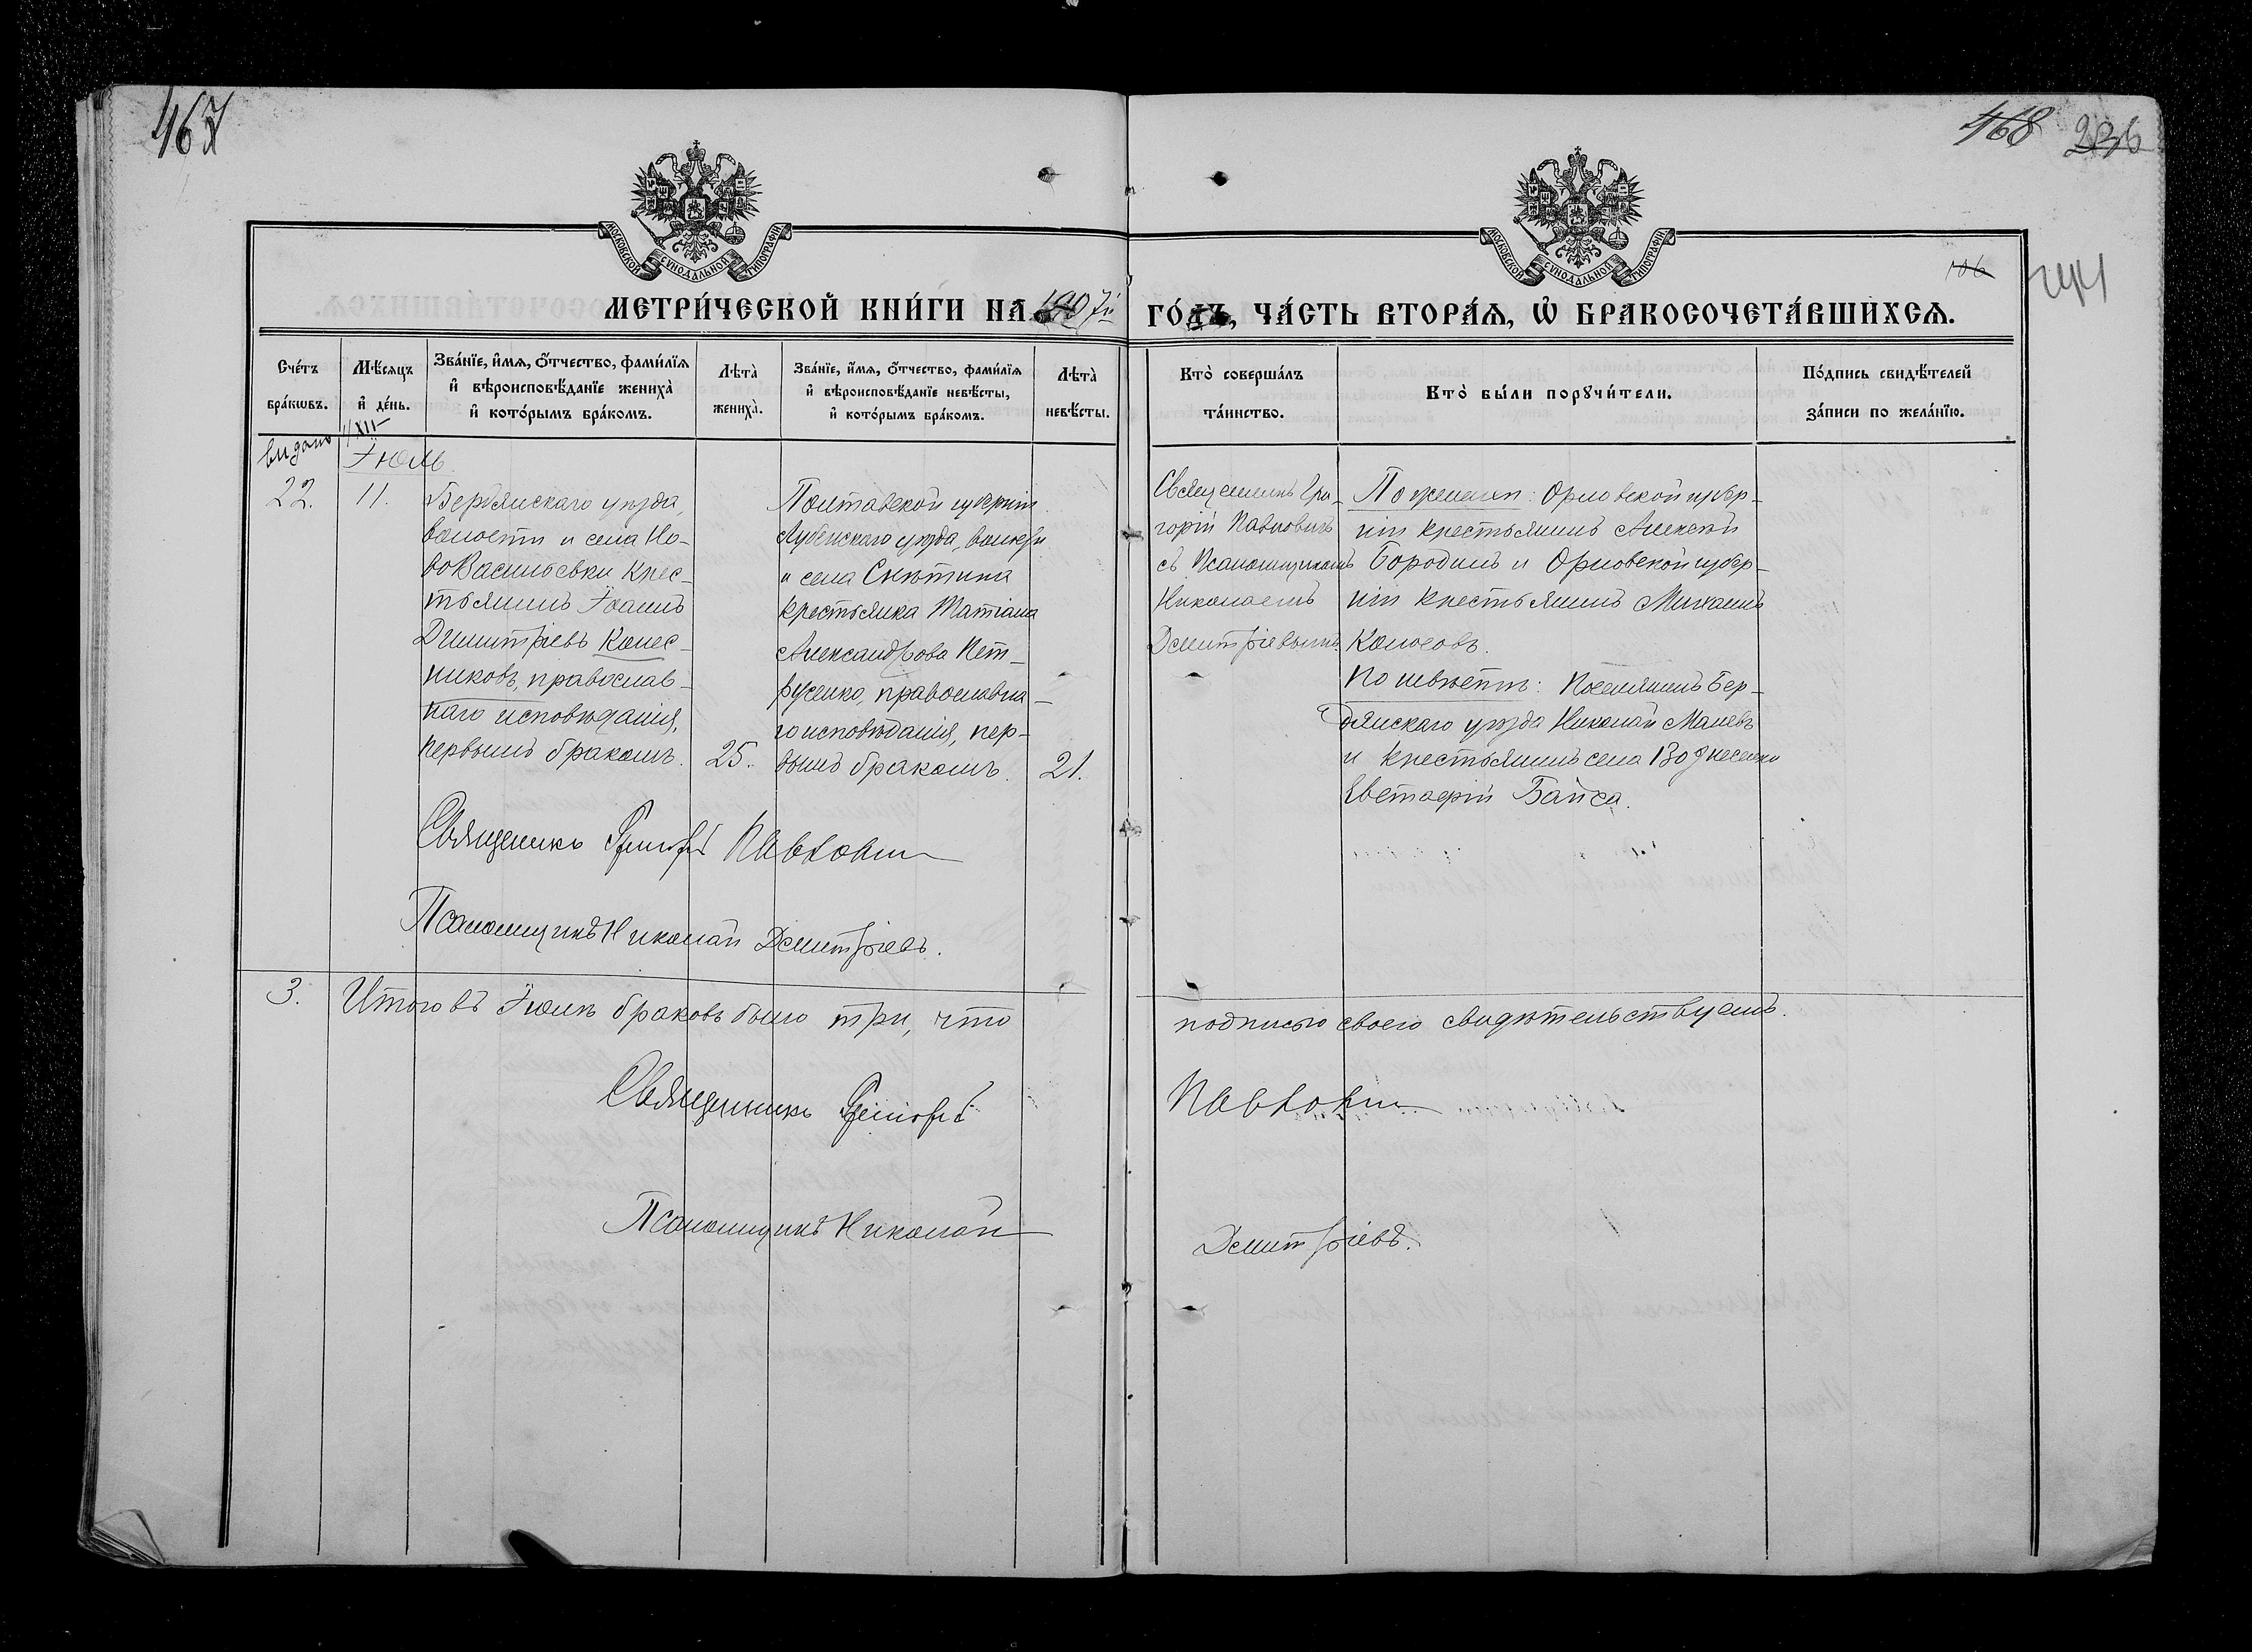 467
468 236
106
244
МОСКОВСКОЙ СУНОДАЛЬНОЙ ТИПОГРАФІИ
МОСКОВСКОЙ СУНОДАЛЬНОЙ ТИПОГРАФІИ
МЕТРИ́ЧЕСКОЙ КНИ́ГИ НА 1907й ГО́ДЪ, ЧА́СТЬ ВТОРА́Я, Ѡ҆ БРАКОСОЧЕТА́ВШИХСЯ.
Сче́тъ бра́кѡвъ.
Мѣ́сяцъ и҆ де́нь.
Зва́нїе, и҆́мя, ѻ҆́тчество, фами́лїя и҆ вѣроисповѣ́данїе жениха̀ и҆ кото́рымъ бра́комъ.
Лѣ́та̀ жениха̀.
Зва́нїе, и҆́мя, ѻ҆́тчество, фами́лїя и҆ вѣроисповѣ́данїе невѣ́сты, и҆ кото́рымъ бра́комъ.
Лѣ́та̀ невѣ́сты.
Кто̀ соверша́лъ та́инство.
Кто̀ бы́ли порꙋчи́тели.
По́дпись свидѣ́телей за́писи по жела́нїю.
видано
XII
Іюль
22.
11.
Бердянскаго уѣзда,
волости и села Но-
воВасильевки крес-
тьянинъ Іоаннъ
Димитріевъ Колес-
никовъ, православ-
наго исповѣданія,
первымъ бракомъ.
25.
Полтавской губерніи
Лубенскаго уѣзда, волости
и села Снѣтина
крестьянка Татіана
Александрова Пет-
русенко, православна-
го исповѣданія, пер-
вымъ бракомъ.
21.
Священникъ Гри-
горій Павловичъ
съ Псаломщикомъ
Николаемъ
Демитріевымъ.
По женихѣ: Орловской губер-
ніи крестьянинъ Алексѣй
Бородинъ и Орловской губер-
ніи крестьянинъ Михаилъ
Колосовъ.
По невѣстѣ: Поселянинъ Бер-
дянскаго уѣзда Николай Маневъ
и крестьянинъ села Вознесенки
Евстафій Байса.
Священникъ Григорій Павловичъ
Псаломщикъ Николай Демитріевъ.
3.
Итого въ Іюлѣ браковъ было три, что подписью своею свидѣтельствуемъ.
Священникъ Григорій Павловичъ
Псаломщикъ Николай Демитріевъ.